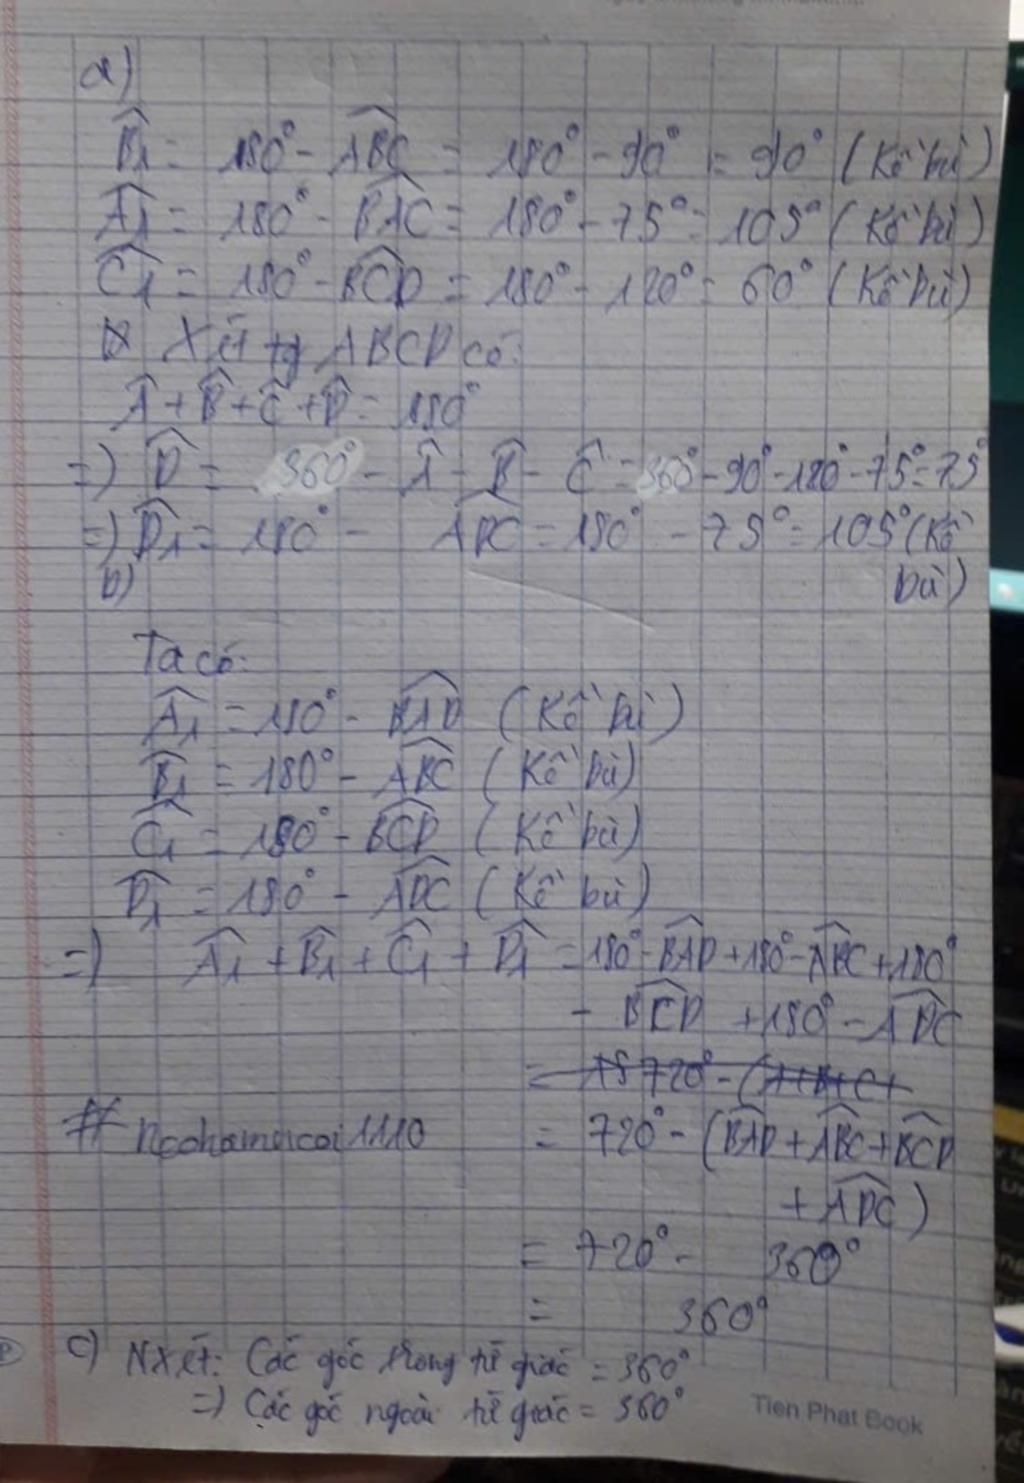 a)
B̂₁ = 180° - ABC = 180° - 90° = 90° (Kề bù)
Â₁ = 180° - BAC = 180° - 75° = 105° (Kề bù)
Ĉ₁ = 180° - BCD = 180° - 120° = 60° (Kề bù)
Xét tg ABCD có:
Â + B̂ + Ĉ + D̂ = 180°
=) D̂ = 360° - Â - B̂ - Ĉ = 360° - 90° - 120° - 75° = 75°
=) D̂₁ = 180° - ADC = 180° - 75° = 105° (Kề
bù)
b)
Ta có:
Â₁ = 180° - BAD (Kề bù)
B̂₁ = 180° - ABC (Kề bù)
Ĉ₁ = 180° - BCD (Kề bù)
D̂₁ = 180° - ADC (Kề bù)
=) Â₁ + B̂₁ + Ĉ₁ + D̂₁ = 180° - BAD + 180° - ABC + 180°
- BCD + 180° - ADC
= 720° - (BAD + ABC + BCD
+ ADC)
= 720° - 360°
= 360°
c) Nxét: Các góc trong tứ giác = 360°
=) Các góc ngoài tứ giác = 360°
Tien Phat Book